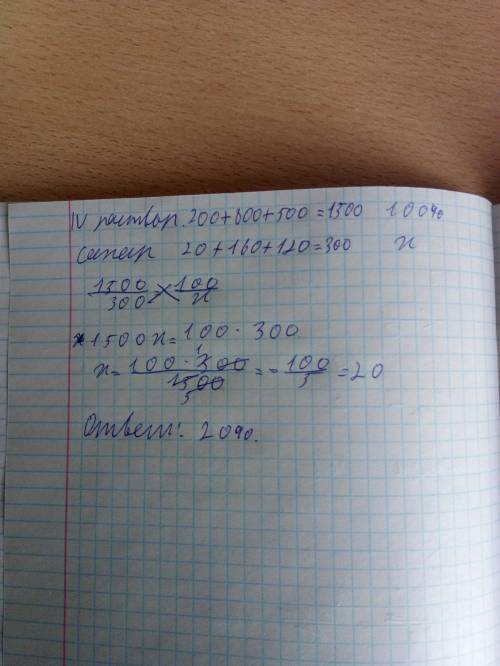 IV раствор 200+800+500=1500 100%
сахар 20+160+120=300 x
1500/300 = 100/x
1500x=100·300
x= 100·300/1500 = 100/5 = 20
Ответ: 20%.